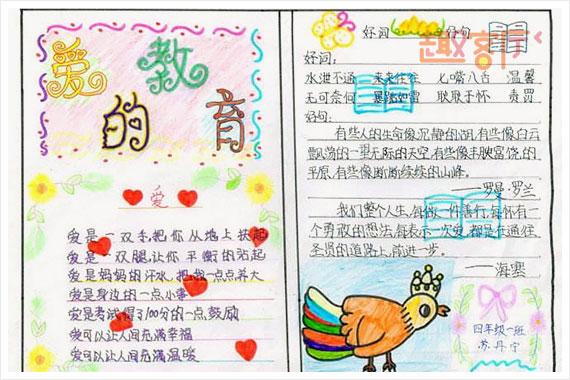 爱的教育
爱
爱是一双手,把你从地上扶起
爱是一双腿,让你平衡的站起
爱是妈妈的汗水,把我一点点养大
爱是身边的一点小事
爱是考试得了100分的一点鼓励
爱可以让人间充满幸福
爱可以让人间充满温暖
好词 好句
好词:
水泄不通 来来往往 七嘴八舌 温馨
无可奈何 暴跳如雷 耿耿于怀 责罚
好句:
有些人的生命像沉静的湖,有些像白云
飘荡的一望无际的天空,有些像丰腴富饶的
平原,有些像断断续续的山峰。
——罗曼·罗兰
我们整个人生,每做一件善行,每怀有一
个勇敢的想法,每表示一次爱,都是在通往
圣贤的道路上,前进一步。
——海塞
四年级一班
苏丹宁